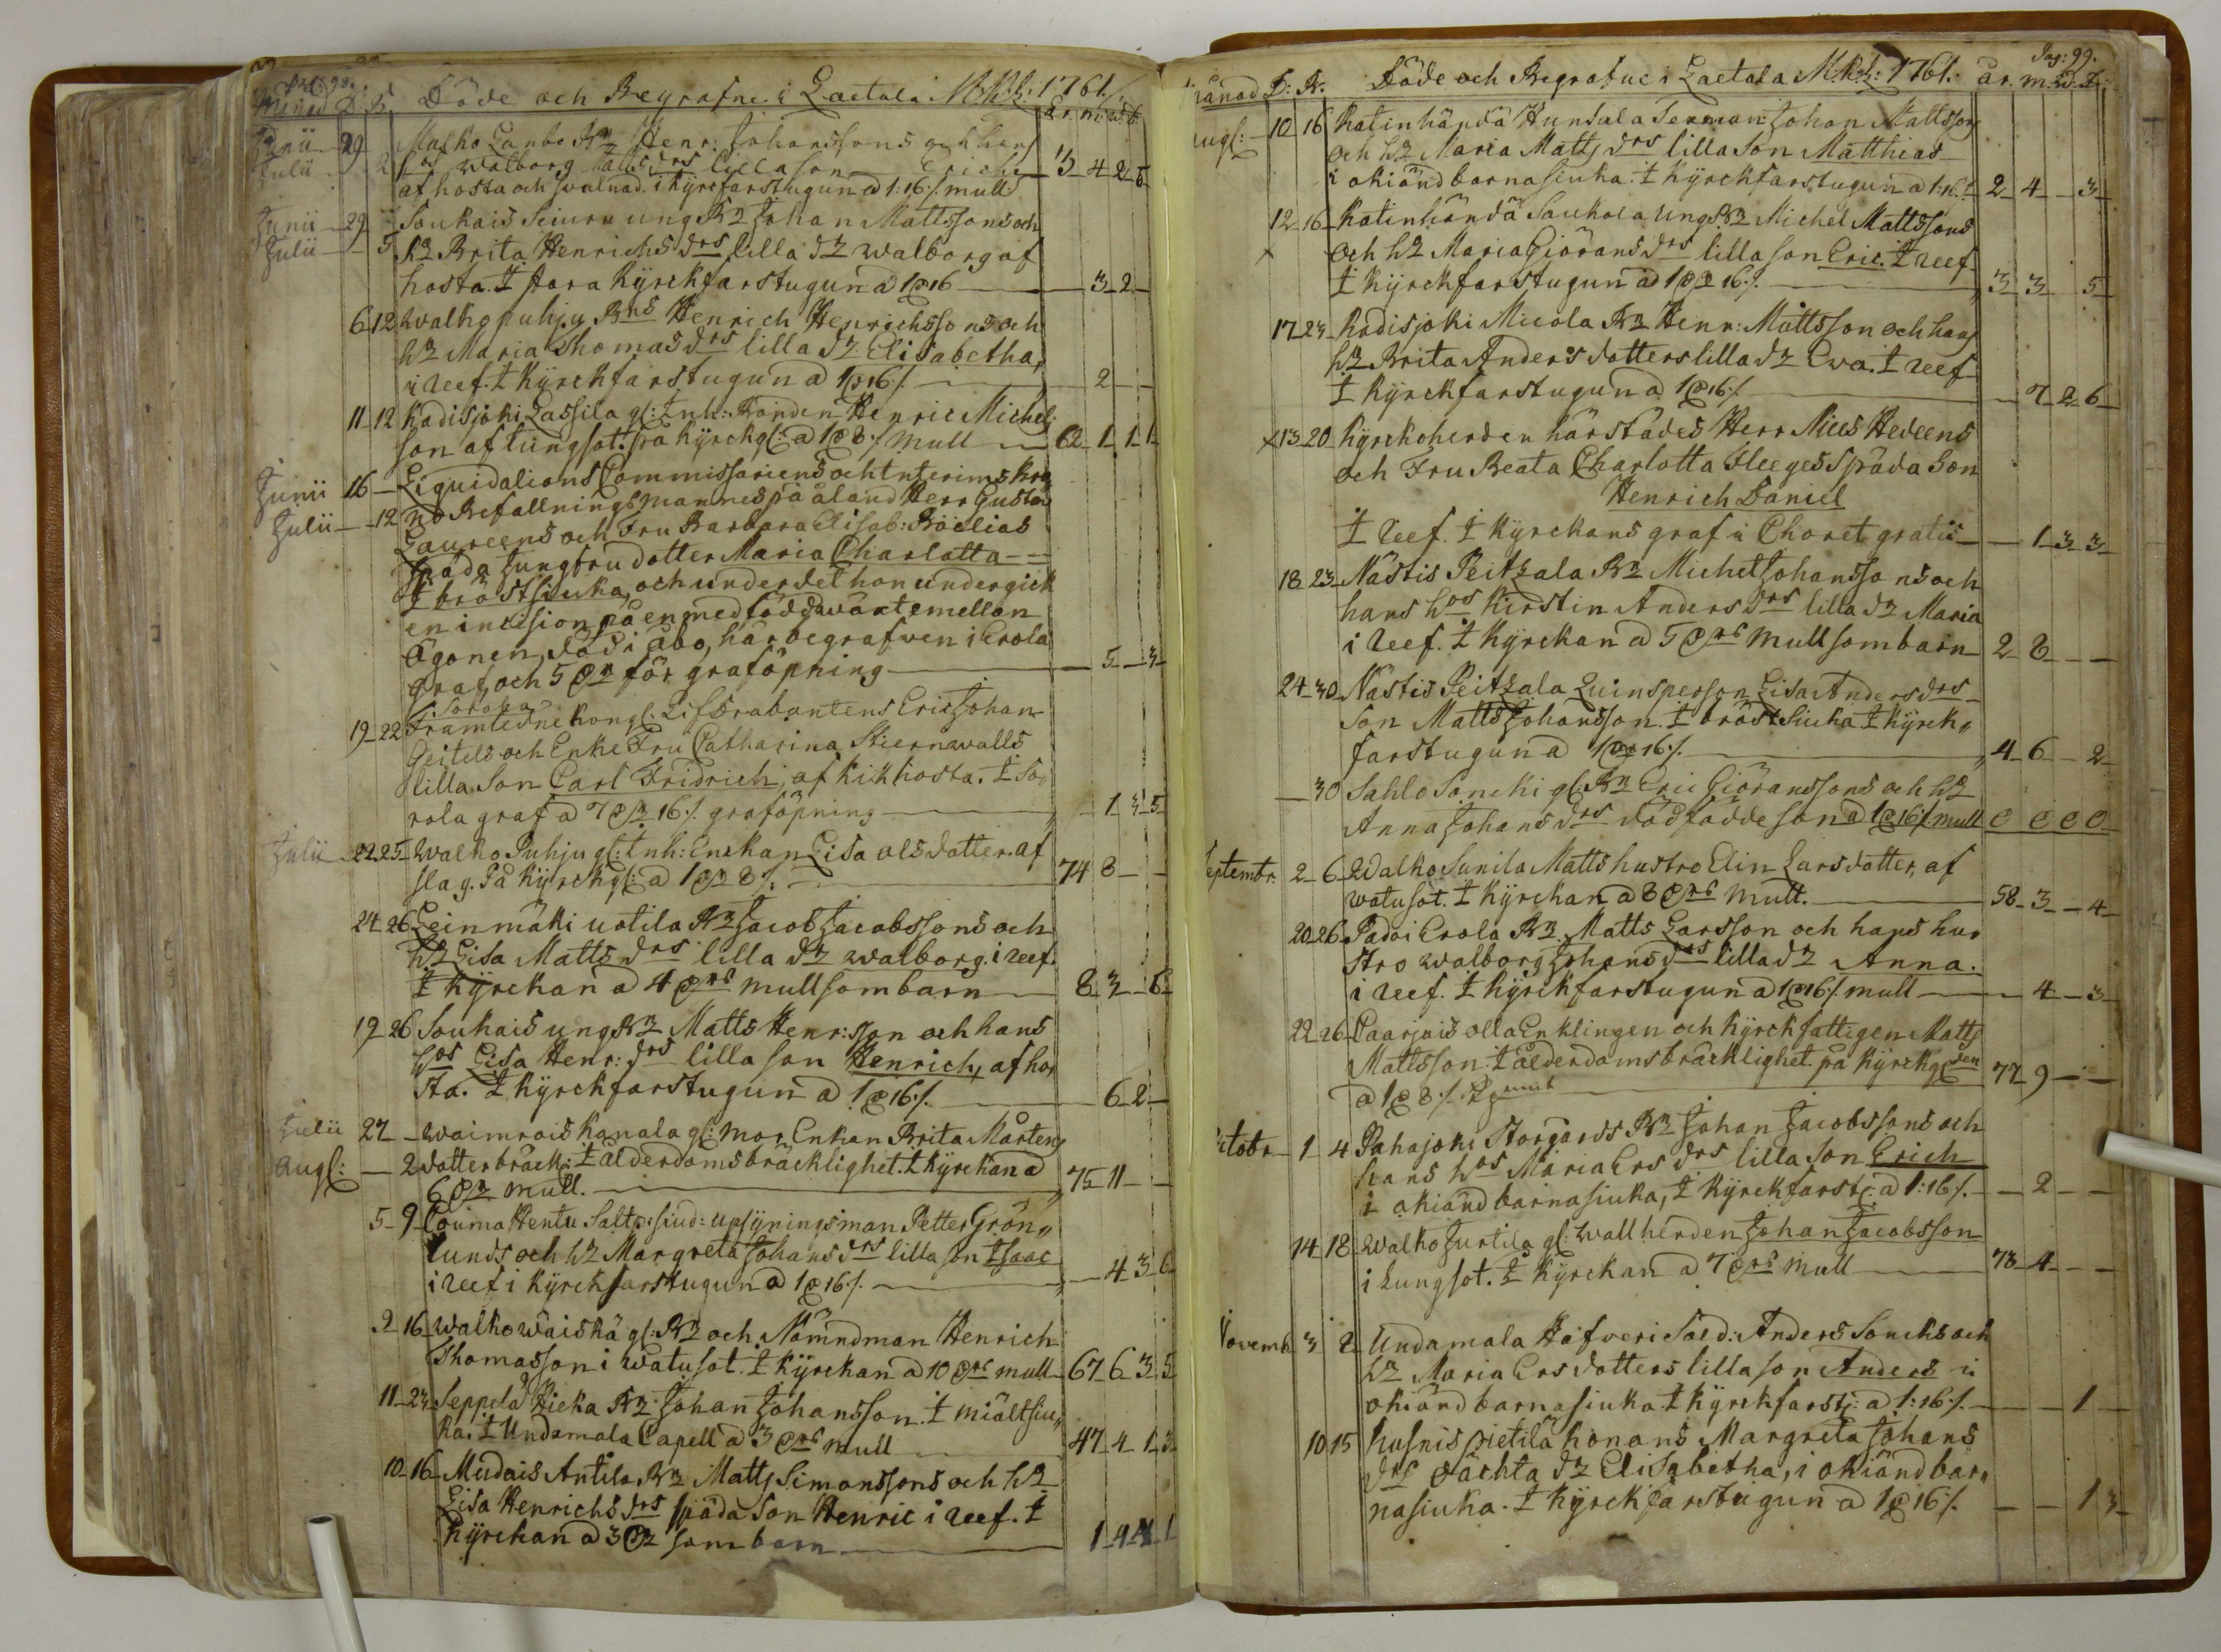 Pag: 98.
Månad D. B. Döde och Begrafne i Laetala M.K.h: 1761. år. m. w. d.
Junii 29 Walko Lambo Bz Henr. Johanssons och hans
Julii 2 hos Walborg drs lilla son Erich 13 4 2 5
af hosta och swalnad. i kyrckfarstugun a 1:16 ⁒ mull
Junii 29 Soukais Seiuru ung Bz Johan Mattssons och
Julii 5 hz Brita Henrichs drs lilla dz Walborg af
hosta. I stora kyrckfarstugun a 1 16 3 2
6 12 Walko puhju Bns Henrich Henrichssons och
hz Maria Thomas drs lilla dz Elisabetha,
i reef. I kyrckfarstugun a 1 16 ⁒ 2
11 12 Kadisjoki Lassila gl: Inh: Bonden Henric Michels
son af lungsot. på kyrckgl: a 1 8 ⁒ mull 62 1 1 1
Junii 16 Liquidations Commissariens och Interims kro
Julii 12 no Befallningsmannes på åland Herr Gustav
Laureens och Fru Barbara Elisab: Böelias
späda Jungfru dotter Maria Charlotta
I bröstsiuka, och under det hon undergick
en incision på en medfödd wäxt emellan
ögonen, död i åbo, här begrafven i Erola
graf, och 5 för graföpning 5 3
Sorola
19 22 Framledne kongl: Lifdrabantens Eric Johan
Geitels och Enke Fru Catharina Stiernwalls
lilla son Carl Fridrich, af kikhosta. I So
rola graf a 7 16 ⁒ graföpning 1 3 5
Julii 22 25 Walko Puhju gl: Inh: Enckan Lisa olsdotter. af
slag. På kyrckgl: a 1 8 ⁒ 74 8
24 26 Leinmäki uotila Bz Jacob Jacobssons och
hz Lisa Matts drs lilla dz Walborg. i reef.
I kyrckan a 4 mull som barn 8 3 6
19 26 Soukais ung Bz Matts Henr:sson och hans
hos Lisa Henr: drs lilla son Henrich, af ho
sta. I kyrckfarstugun a 1 16 ⁒ 6 2
Julii 27 Waimrois kanala gl: mor Enkan Brita Mårtens
Augl: 2 dotter bräck: I ålderdomsbräcklighet. I kyrckan a
6 mull. 75 11
5 9 Couma Hentu Saltp: siud: upsyningsman Petter Grön
lunds och hz Margreta Johans drs lilla son Isaac
i reef i kyrckfarstugun a 1 16 ⁒ 4 3 6
9 16 Walko Wäiskä gl: Bz och Nämndman Henrich
Thomasson i watusot. I kyrckan a 10 mull 67 6 3 5
11 23 Seppelä Kieka Bz Johan Johansson. I miältsiu
ka. I Undamala Capell a 3 mull 47 4 1 3
10 16 Mudais Antila Bz Matts Simonssons och hz
Lisa Henrichs drs späda son Henric i reef. I
kyrckan a 3 som barn 1 4 1
Pag: 99.
Månad D: B. Döde och Begrafne i Laetala M.K.h: 1761. år. m. w. D:
Augl: 10 16 Katinhändä Hunsala Sexman Johan Mattsson
och hz Maria Matts drs lilla son Matthias
i okiänd barnasiuka. I kyrckfarstugun a 1:16 ⁒ 2 4 3
12 16 Katinhändä Saukola ung Bz Michel Mattssons
x och hz Maria Giörans drs lilla son Eric. I reef
I kyrckfarstugun a 1 16 ⁒ 3 3 5
17 23 Kadisjoki Micola Bz Henr: Mattsson och hans
hz Brita Anders dotters lilla dz Ewa. I reef
I kyrckfarstugun a 1 16 ⁒ 7 2 6
x 13 20 Kyrckoherden härstädes Herr Nices Hedeens
och Fru Beata Charlotta Fleeges späda son
Henrich Daniel
I reef. I kyrckans graf i Choret gratis 1 3 3
18 23 Nästis Peitzala Bz Michel Johanssons och
hans hos Kirstin Anders drs lilla dz Maria
i reef. I kyrckan a 5 mull som barn 2 8
24 30 Nästis Peitzala Quinsperson Lisa Anders drs
son Matts Johansson. I bröstsiuka I kyrck
farstugun a 1 16 ⁒ 4 6 2
30 Sahlo Soncki gl: Bz Eric Giöranssons och hz
Anna Johans drs dödfödde son a 1 16 ⁒ mull 0 0 0 0
Septembr. 2 6 Walko Sunila Matts hustro Elin Larsdotter, af
watusot. I kyrckan a 8 mull. 58 3 4
20 26 Padoi Erola Bz Matts Larsson och hans hu
stro Walborg Johans drs lilla dz Anna.
i reef. I kyrckfarstugun a 1 16 ⁒ mull 4 3
22 26 Caarjois olla Enklingen och kyrckfattigen Matts
Mattsson. I ålderdomsbräcklighet på kyrckgl den
a 1 8 ⁒ 77 9
Octobr 1 4 Pahajoki Storgårds Bz Johan Jacobssons och
hans hos Maria Ers drs lilla son Erich
i okiänd barnasiuka, I kyrckfarst: a 1:16 ⁒ 2
14 18 Walko Jurtila gl: wallherden Johan Jacobsson
i lungsot. I kyrckan a 7 mull 73 4
Novemb 3 8 Undamala Höfveri Sold: Anders Soncks och
hz Maria Ersdotters lilla son Anders i
okiänd barnasiuka. I kyrckfarst: a 1:16 ⁒ 1
10 15 Kusnis pietilä konans Margreta Johans
drs oächta dz Elisabetha, i okiänd bar
nasiuka. I kyrckfarstugun a 1 16 ⁒ 1 3